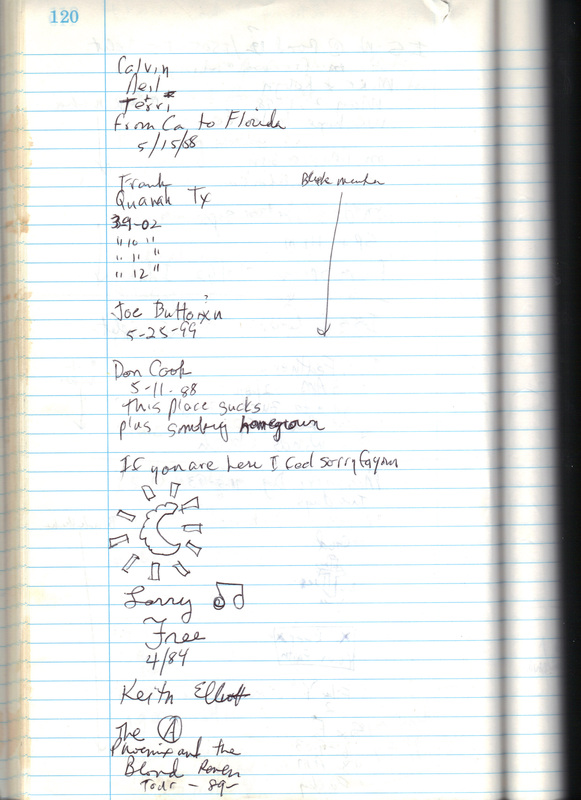 120
Calvin
Neil
+
Terri
From Ca. to Florida
5/15/88
Frank
Quanah Tx
39-02
" 10 "
" 11 "
" 12 "
Black marker
Joe Button
?
5-25-99
Don Cook
5-11-88
this place sucks
plus smoking homegrown
If you are here I feel sorry for you
Larry
Free
4/84
Keith Elliott
The A
Phoenix and the
Blond Raven
Tour - 89-